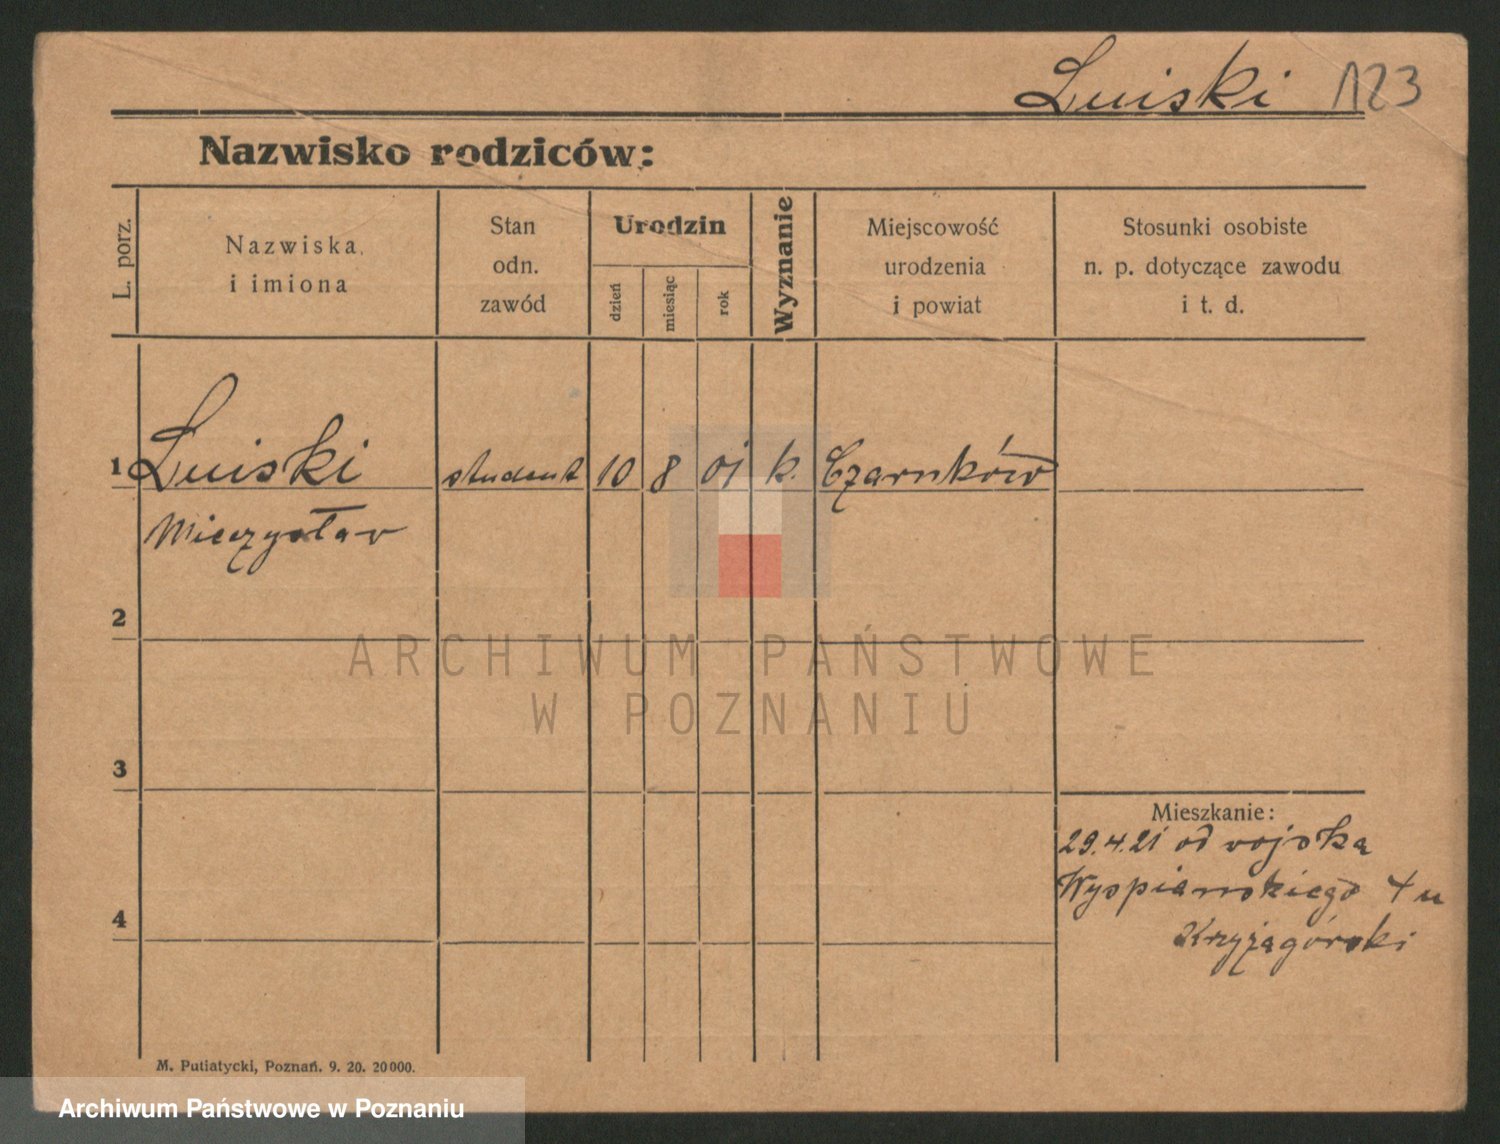 Luiski 123
Nazwisko rodziców:
L. porz.
Nazwiska
i imiona
Stan
odn.
zawód
Urodzin
dzień
miesiąc
rok
Wyznanie
Miejscowość
urodzenia
i powiat
Stosunki osobiste
n. p. dotyczące zawodu
i t. d.
1 Luiski student 10 8 01 k. Czarnków
Mieczysław
2
ARCHIWUM PAŃSTWOWE
W POZNANIU
3
Mieszkanie:
29.4.21 od wojska
Wyspianskiego 4 u
Krzyżagórski
4
M. Putiatycki, Poznań. 9. 20. 20000.
Archiwum Państwowe w Poznaniu